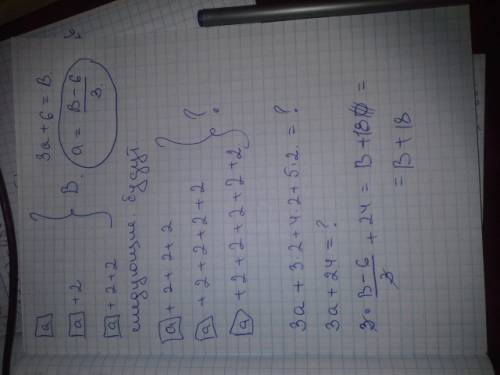 a
a + 2 } B.
a + 2 + 2
3a + 6 = B.
a = (B - 6)/3.
следующие будут
a + 2 + 2 + 2
a + 2 + 2 + 2 + 2 } ?
a + 2 + 2 + 2 + 2 + 2
3a + 3·2 + 4·2 + 5·2 = ?
3a + 24 = ?
3 · (B - 6)/3 + 24 = B + 18 =
= B + 18